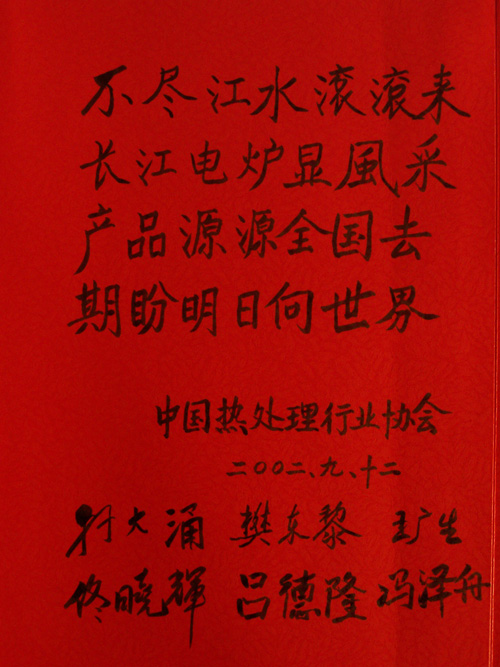 不尽江水滚滚来
长江电炉显風采
产品源源全国去
期盼明日向世界
中国热处理行业协会
二〇〇二、九、十二
大涌 樊东黎 王广生
佟晓辉 吕德隆 冯泽舟